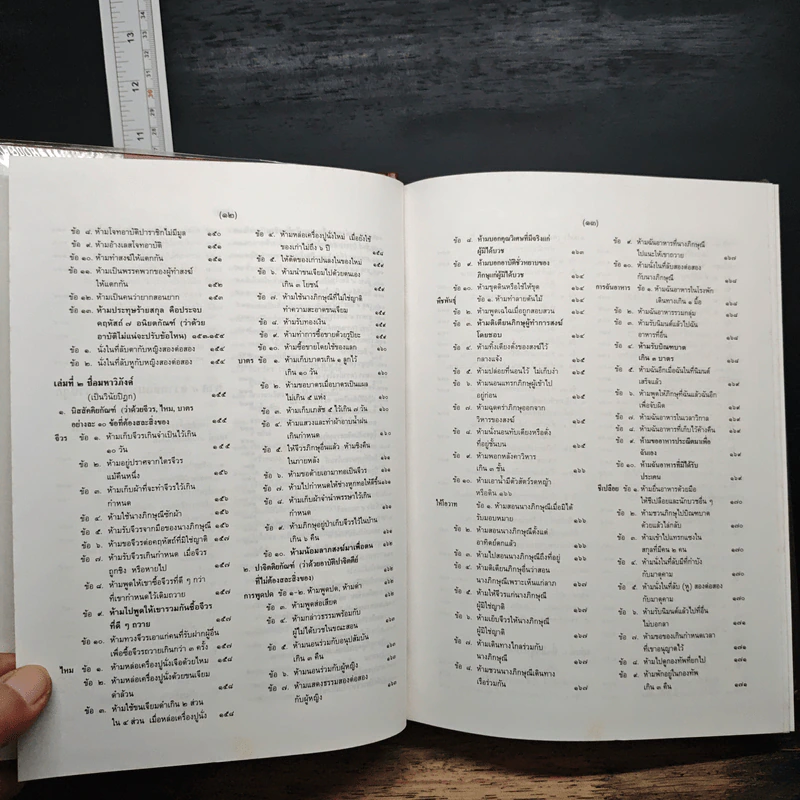 13
12
11
(๑๒)
ข้อ ๘. ห้ามโจทอาบัติปาราชิกไม่มีมูล ๑๕๐
ข้อ ๙. ห้ามอ้างเลสโจทอาบัติ
ข้อ ๑๐. ห้ามทำสงฆ์ให้แตกกัน
ข้อ ๑๑. ห้ามเป็นพรรคพวกของผู้ทำสงฆ์
ให้แตกกัน ๑๕๒
ข้อ ๑๒. ห้ามเป็นคนว่ายากสอนยาก
ข้อ ๑๓. ห้ามประทุษร้ายสกุล คือประจบ
คฤหัสถ์ ๗ อนิยตกัณฑ์ (ว่าด้วย
อาบัติไม่แน่จะปรับข้อไหน) ๑๕๓-๑๕๔
ข้อ ๑. นั่งในที่ลับตากับหญิงสองต่อสอง
ข้อ ๒. นั่งในที่ลับหูกับหญิงสองต่อสอง ๑๕๔
เล่มที่ ๒ ชื่อมหาวิภังค์
(เป็นวินัยปิฎก) ๑๕๕
๑. นิสสัคคิยกัณฑ์ (ว่าด้วยจีวร, ไหม, บาตร
อย่างละ ๑๐ ข้อที่ต้องสละสิ่งของ
จีวร ข้อ ๑. ห้ามเก็บจีวรเกินจำเป็นไว้เกิน
๑๐ วัน ๑๕๕
ข้อ ๒. ห้ามอยู่ปราศจากไตรจีวร
แม้คืนหนึ่ง ๑๕๖
ข้อ ๓. ห้ามเก็บผ้าที่จะทำจีวรไว้เกิน
กำหนด ๑๕๖
ข้อ ๔. ห้ามใช้นางภิกษุณีซักผ้า
ข้อ ๕. ห้ามรับจีวรจากมือของนางภิกษุณี
ข้อ ๖. ห้ามขอจีวรต่อคฤหัสถ์ที่มิใช่ญาติ ๑๕๗
ข้อ ๗. ห้ามรับจีวรเกินกำหนด เมื่อจีวร
ถูกชิง หรือหายไป ๑๕๗
ข้อ ๘. ห้ามพูดให้เขาซื้อจีวรที่ดี ๆ กว่า
ที่เขากำหนดไว้เดิมถวาย ๑๕๗
ข้อ ๙. ห้ามไปพูดให้เขารวมกันซื้อจีวร
ที่ดี ๆ ถวาย ๑๕๗
ข้อ ๑๐. ห้ามทวงจีวรเอาแก่คนที่รับฝากผู้อื่น
เพื่อซื้อจีวรถวายเกินกว่า ๓ ครั้ง ๑๕๗
ไหม ข้อ ๑. ห้ามหล่อเครื่องปูนั่งเจือด้วยไหม
ข้อ ๒. ห้ามหล่อเครื่องปูนั่งด้วยขนเจียม
ดำล้วน ๑๕๘
ข้อ ๓. ห้ามใช้ขนเจียมดำเกิน ๒ ส่วน
ใน ๔ ส่วน เมื่อหล่อเครื่องปูนั่ง ๑๕๘
ข้อ ๔. ห้ามหล่อเครื่องปูนั่งใหม่ เมื่อยังใช้
ของเก่าไม่ถึง ๖ ปี ๑๕๘
ข้อ ๕. ให้ตัดของเก่าปนลงในของใหม่
ข้อ ๖. ห้ามนำขนเจียมไปด้วยตนเอง
เกิน ๓ โยชน์
ข้อ ๗. ห้ามใช้นางภิกษุณีที่ไม่ใช่ญาติ
ทำความสะอาดขนเจียม
ข้อ ๘. ห้ามรับทองเงิน
ข้อ ๙. ห้ามทำการซื้อขายด้วยรูปิยะ
ข้อ ๑๐. ห้ามซื้อขายโดยใช้ของแลก
บาตร ข้อ ๑. ห้ามเก็บบาตรเกิน ๑ ลูกไว้
เกิน ๑๐ วัน
ข้อ ๒. ห้ามขอบาตรเมื่อบาตรเป็นแผล
ไม่เกิน ๕ แห่ง
ข้อ ๓. ห้ามเก็บเภสัช ๕ ไว้เกิน ๗ วัน
ข้อ ๔. ห้ามแสวงและทำผ้าอาบน้ำฝน
เกินกำหนด
ข้อ ๕. ให้จีวรภิกษุอื่นแล้ว ห้ามชิงคืน
ในภายหลัง
ข้อ ๖. ห้ามขอด้ายเอามาทอเป็นจีวร
ข้อ ๗. ห้ามไปกำหนดให้ช่างหูกทอให้ดีขึ้น
ข้อ ๘. ห้ามเก็บผ้าจำนำพรรษาไว้เกิน
กำหนด
ข้อ ๙. ห้ามภิกษุอยู่ป่าเก็บจีวรไว้ในบ้าน
เกิน ๖ คืน
ข้อ ๑๐. ห้ามน้อมลาภสงฆ์มาเพื่อตน
๒. ปาจิตติยกัณฑ์ (ว่าด้วยอาบัติปาจิตตีย์
ที่ไม่ต้องสละสิ่งของ)
การพูดปด ข้อ ๑-๒. ห้ามพูดปด, ห้ามด่า
ข้อ ๓. ห้ามพูดส่อเสียด
ข้อ ๔. ห้ามกล่าวธรรมพร้อมกับ
ผู้ไม่ได้บวชในขณะสอน
ข้อ ๕. ห้ามนอนร่วมกับอนุปสัมบัน
เกิน ๓ คืน
ข้อ ๖. ห้ามนอนร่วมกับผู้หญิง
ข้อ ๗. ห้ามแสดงธรรมสองต่อสอง
กับผู้หญิง
(๑๓)
ข้อ ๘. ห้ามบอกคุณวิเศษที่มีจริงแก่
ผู้มิได้บวช ๑๖๓
ข้อ ๙. ห้ามบอกอาบัติชั่วหยาบของ
ภิกษุแก่ผู้มิได้บวช ๑๖๓
ข้อ ๑๐. ห้ามขุดดินหรือใช้ให้ขุด ๑๖๔
พืชพันธุ์ ข้อ ๑. ห้ามทำลายต้นไม้ ๑๖๔
ข้อ ๒. ห้ามพูดเฉไฉเมื่อถูกสอบสวน ๑๖๔
ข้อ ๓. ห้ามติเตียนภิกษุผู้ทำการสงฆ์
โดยชอบ ๑๖๔
ข้อ ๔. ห้ามทิ้งเตียงตั่งของสงฆ์ไว้
กลางแจ้ง
ข้อ ๕. ห้ามปล่อยที่นอนไว้ ไม่เก็บงำ
ข้อ ๖. ห้ามนอนแทรกภิกษุผู้เข้าไป
อยู่ก่อน
ข้อ ๗. ห้ามฉุดคร่าภิกษุออกจาก
วิหารของสงฆ์
ข้อ ๘. ห้ามนั่งนอนทับเตียงหรือตั่ง
ที่อยู่ชั้นบน
ข้อ ๙. ห้ามพอกหลังคาวิหาร
เกิน ๓ ชั้น
ข้อ ๑๐. ห้ามเอาน้ำมีตัวสัตว์รดหญ้า
หรือดิน ๑๖๖
ให้โอวาท ข้อ ๑. ห้ามสอนนางภิกษุณีเมื่อมิได้
รับมอบหมาย
ข้อ ๒. ห้ามสอนนางภิกษุณีตั้งแต่
อาทิตย์ตกแล้ว
ข้อ ๓. ห้ามไปสอนนางภิกษุณีถึงที่อยู่
ข้อ ๔. ห้ามติเตียนภิกษุอื่นว่าสอน
นางภิกษุณีเพราะเห็นแก่ลาภ
ข้อ ๕. ห้ามให้จีวรแก่นางภิกษุณี
ผู้มิใช่ญาติ
ข้อ ๖. ห้ามเย็บจีวรให้นางภิกษุณี
ผู้มิใช่ญาติ
ข้อ ๗. ห้ามเดินทางไกลร่วมกับ
นางภิกษุณี
ข้อ ๘. ห้ามชวนนางภิกษุณีเดินทาง
เรือร่วมกัน ๑๖๗
ข้อ ๙. ห้ามฉันอาหารที่นางภิกษุณี
ไปแนะให้เขาถวาย
ข้อ ๑๐. ห้ามนั่งในที่ลับสองต่อสอง
กับนางภิกษุณี ๑๖๘
การฉันอาหาร ข้อ ๑. ห้ามฉันอาหารในโรงพัก
เดินทางเกิน ๑ มื้อ
ข้อ ๒. ห้ามฉันอาหารรวมกลุ่ม
ข้อ ๓. ห้ามรับนิมนต์แล้วไปฉัน
อาหารที่อื่น
ข้อ ๔. ห้ามรับบิณฑบาต
เกิน ๓ บาตร
ข้อ ๕. ห้ามฉันอีกเมื่อฉันในที่นิมนต์
เสร็จแล้ว
ข้อ ๖. ห้ามพูดให้ภิกษุที่ฉันแล้วฉันอีก
เพื่อจับผิด
ข้อ ๗. ห้ามฉันอาหารในเวลาวิกาล
ข้อ ๘. ห้ามฉันอาหารที่เก็บไว้ค้างคืน
ข้อ ๙. ห้ามขออาหารประณีตมาเพื่อ
ฉันเอง
ข้อ ๑๐. ห้ามฉันอาหารที่มิได้รับ
ประเคน
ชีเปลือย ข้อ ๑. ห้ามยื่นอาหารด้วยมือ
ให้ชีเปลือยและนักบวชอื่น ๆ ๑๗๐
ข้อ ๒. ห้ามชวนภิกษุไปบิณฑบาต
ด้วยแล้วไล่กลับ ๑๗๐
ข้อ ๓. ห้ามเข้าไปแทรกแซง
ในสกุลที่มีคน ๒ คน ๑๗๐
ข้อ ๔. ห้ามนั่งในที่ลับมีที่กำบัง
กับมาตุคาม ๑๗๐
ข้อ ๕. ห้ามนั่งในที่ลับ (หู) สองต่อสอง
กับมาตุคาม
ข้อ ๖. ห้ามรับนิมนต์แล้วไปที่อื่น
ไม่บอกลา
ข้อ ๗. ห้ามขอของเกินกำหนดเวลา
ที่เขาอนุญาตไว้
ข้อ ๘. ห้ามไปดูกองทัพที่ยกไป ๑๗๑
ข้อ ๙. ห้ามพักอยู่ในกองทัพ
เกิน ๓ คืน ๑๗๑